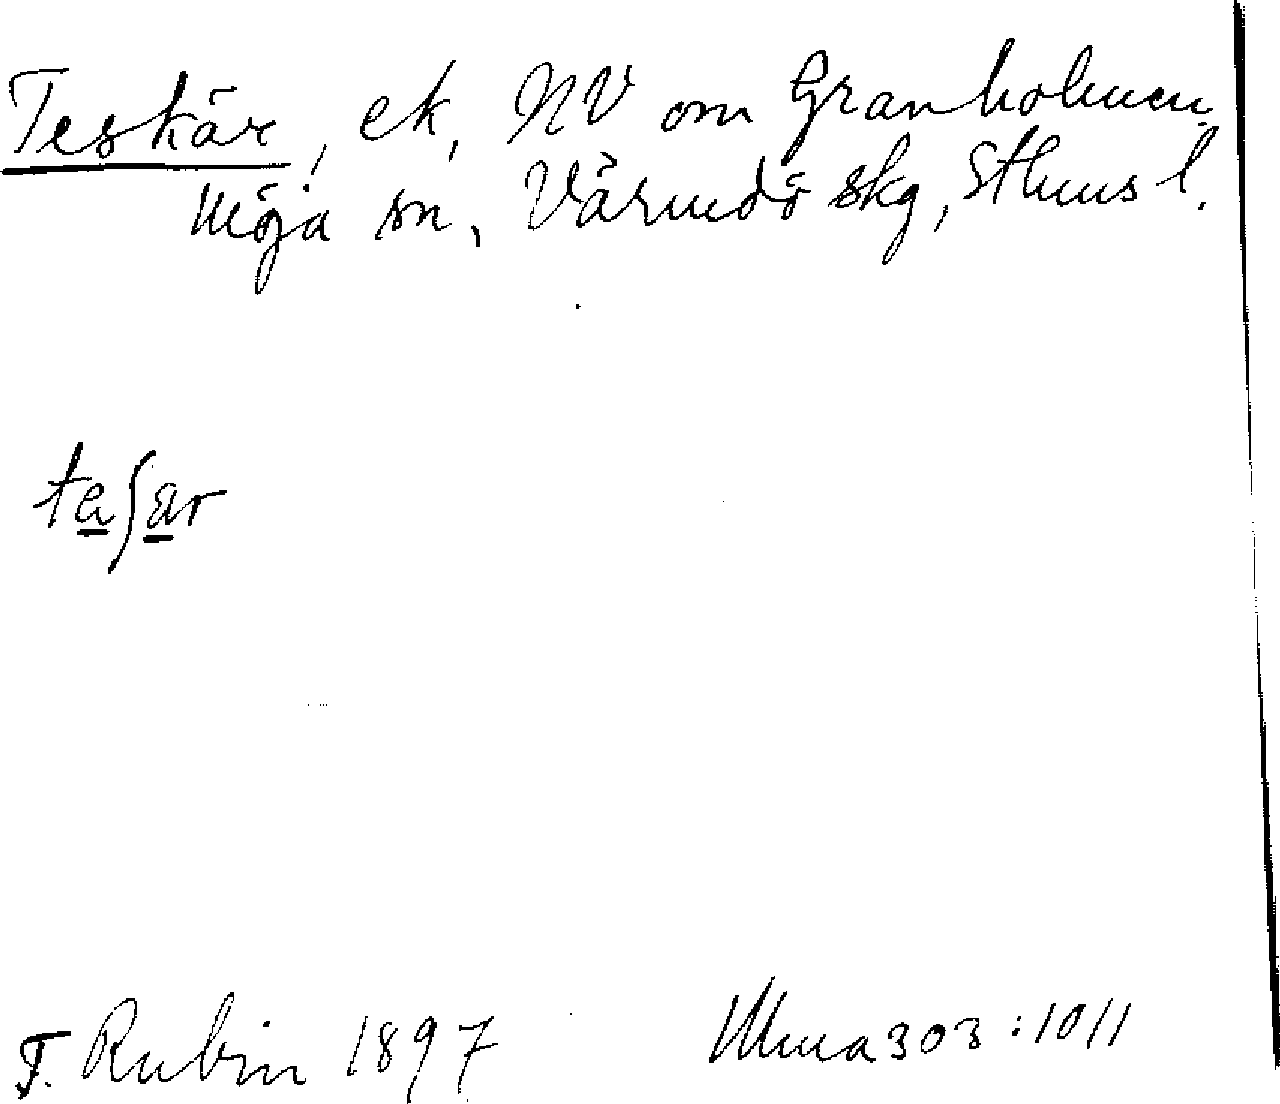 Teskär, ek, NV om Granholmen,
Möja sn, Värmdö skg, Sthms l.
teʃär
F. Rubin 1897
Ulma 303:1011